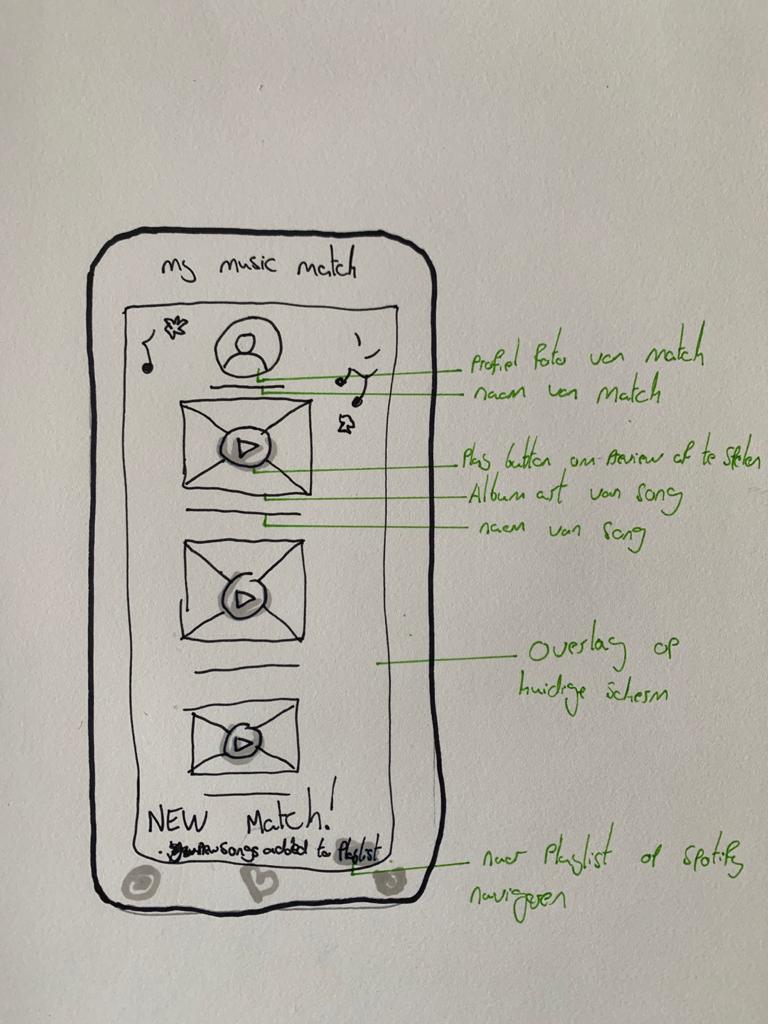 my music match
Profiel foto van match
naam van match
Play button om Preview af te spelen
Album art van song
naam van song
Overlay op
huidige scherm
NEW Match!
songs added to Playlist
naar Playlist op Spotify
navigeren